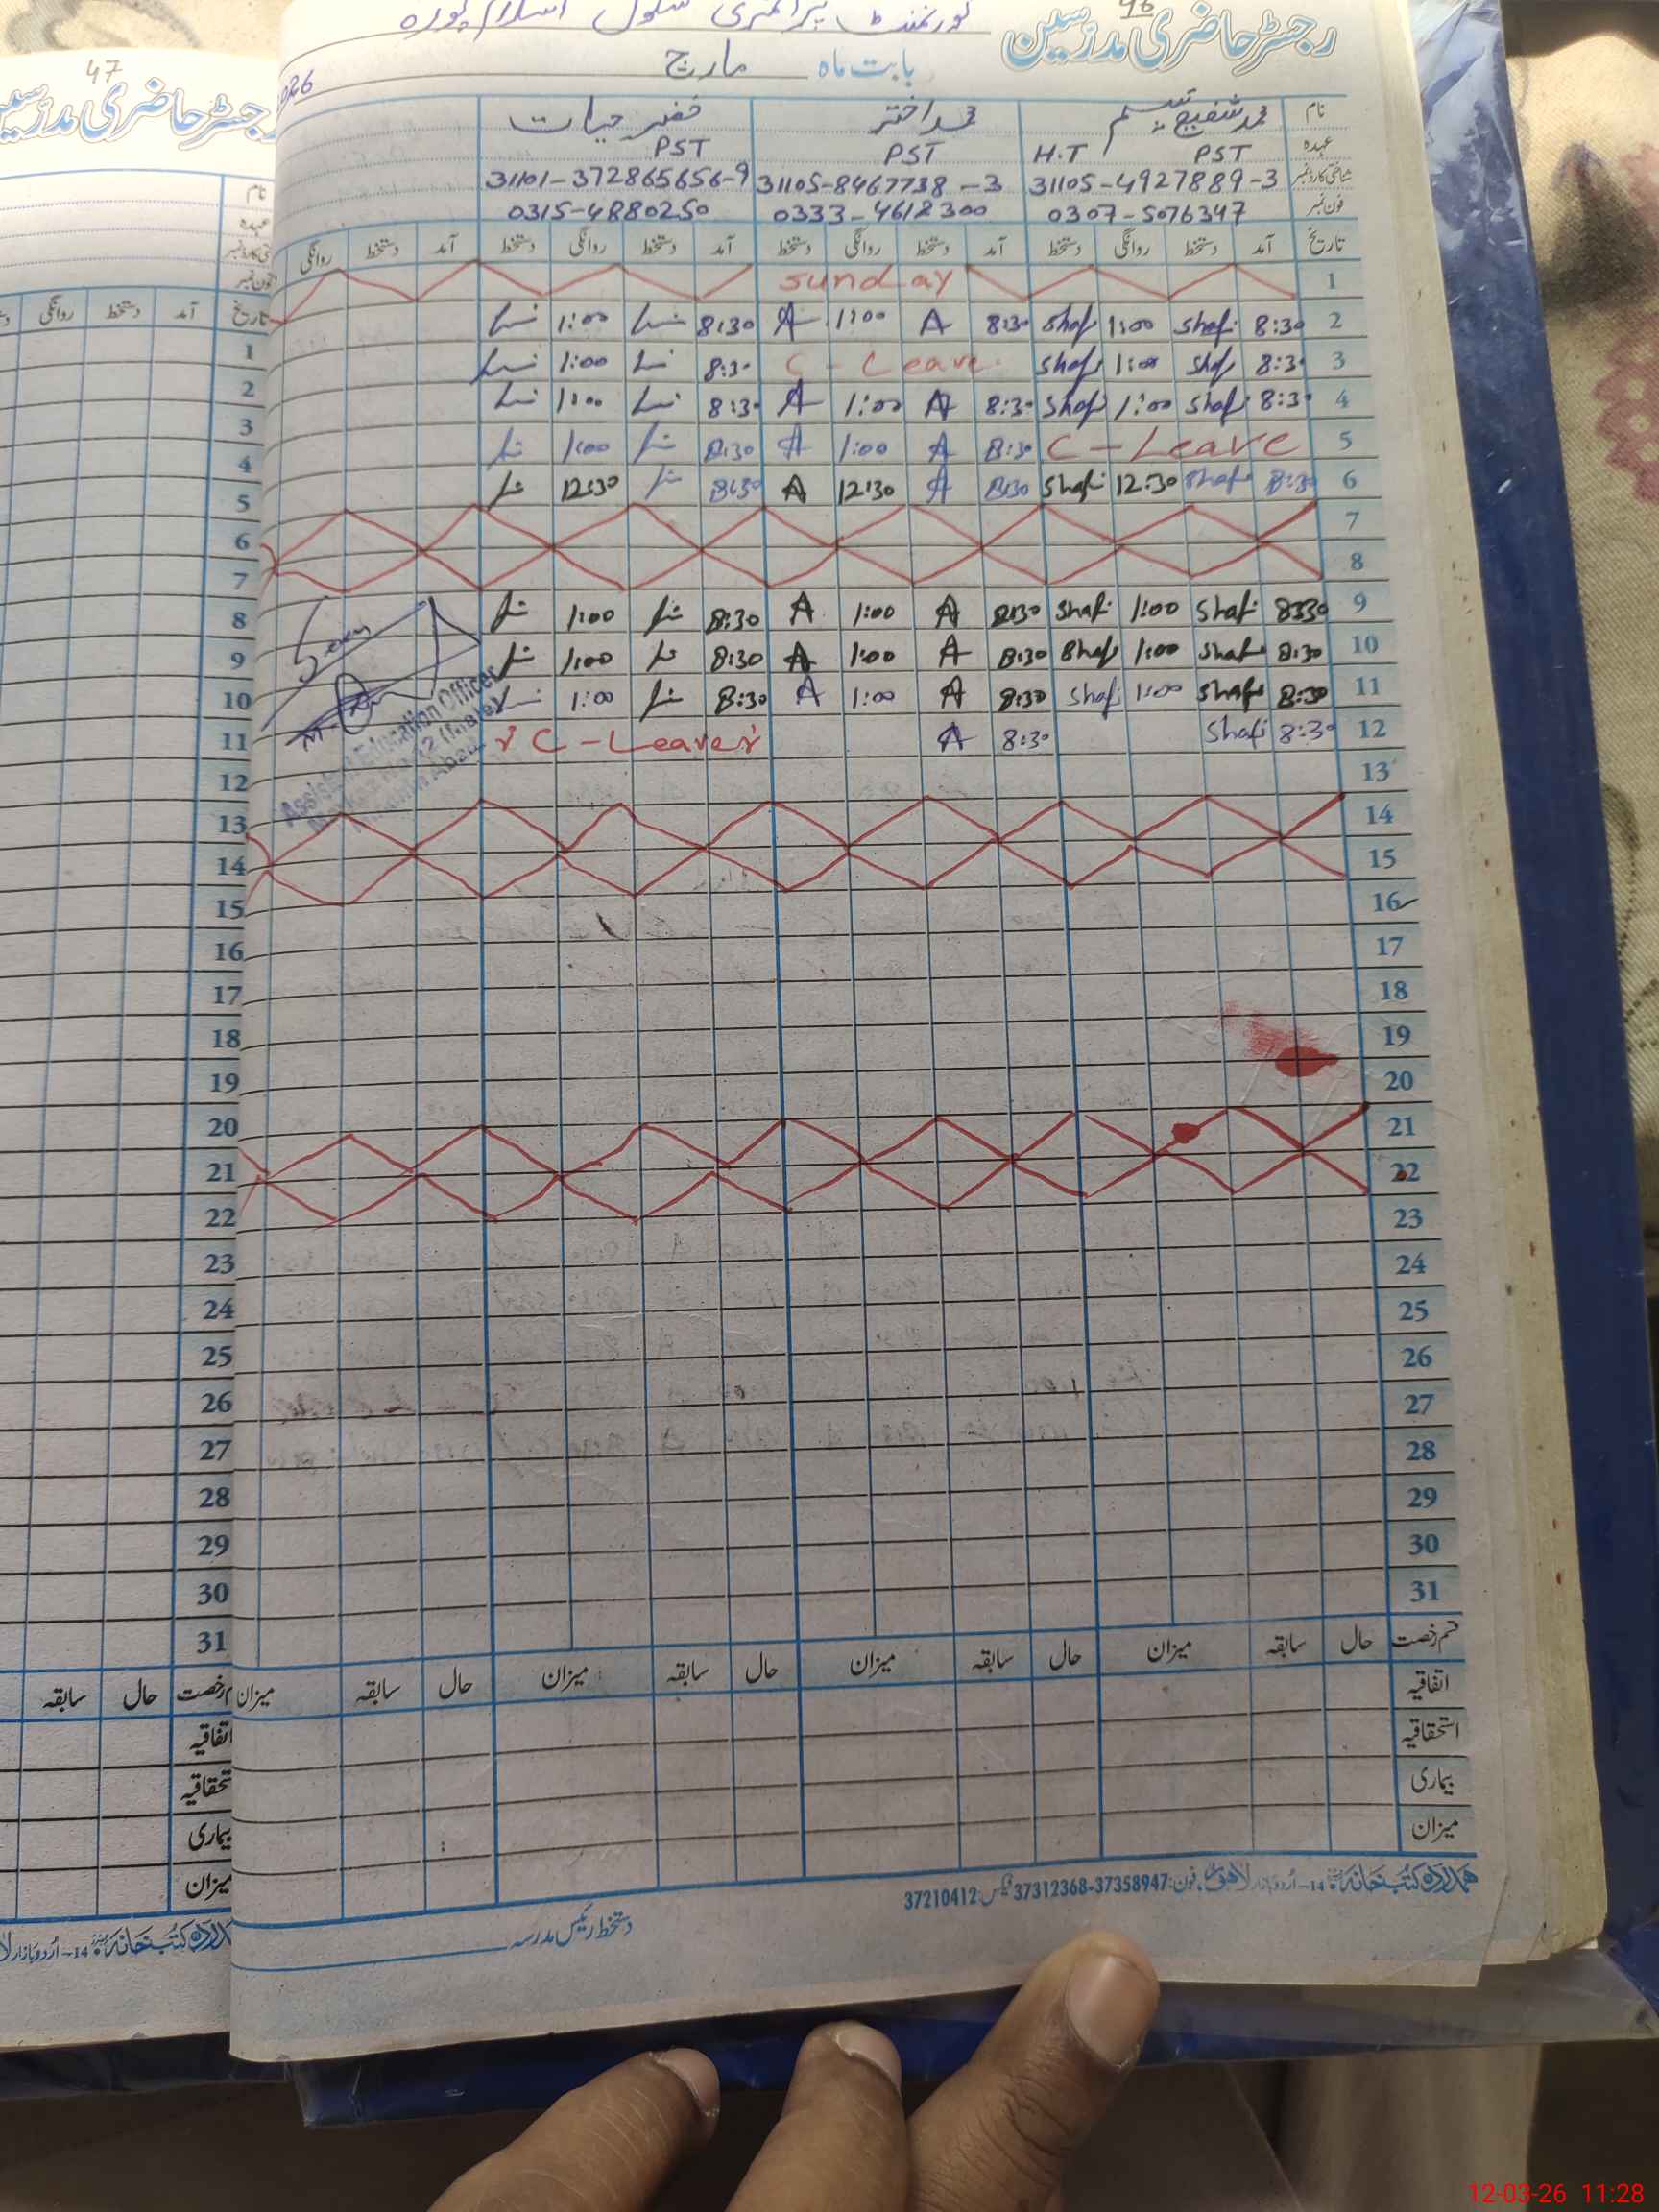 46
رجسٹر حاضری مدرسین
گورنمنٹ پرائمری سکول اسلام پورہ
بابت ماہ مارچ
2026
نام محمد شفیع تبسم محمد اختر خضر حیات
عہدہ PST H.T PST PST
شناختی کارڈ نمبر 31105-4927889-3 31105-8467738-3 31101-372865656-9
فون نمبر 0307-5076347 0333-4612300 0315-4880250
تاریخ آمد دستخط روانگی دستخط آمد دستخط روانگی دستخط آمد دستخط روانگی دستخط آمد دستخط روانگی
1 Sunday
2 8:30 Shafi 1:00 Shafi 8:30 A 1:00 A 8:30 1:00
3 8:30 Shafi 1:00 Shafi C-Leave 8:30 1:00
4 8:30 Shafi 1:00 Shafi 8:30 A 1:00 A 8:30 1:00
5 C-Leave 8:30 A 1:00 A 8:30 1:00
6 8:30 Shafi 12:30 Shafi 8:30 A 12:30 A 8:30 12:30
7
8
9 8:30 Shafi 1:00 Shafi 8:30 A 1:00 A 8:30 1:00
10 8:30 Shafi 1:00 Shafi 8:30 A 1:00 A 8:30 1:00
11 8:30 Shafi 1:00 Shafi 8:30 A 1:00 A 8:30 1:00
12 8:30 Shafi 8:30 A C-Leave
Assistant Education Officer
13
14
15
16
17
18
19
20
21
22
23
24
25
26
27
28
29
30
31
قسم رخصت حال سابقہ میزان حال سابقہ میزان حال سابقہ میزان حال سابقہ میزان
اتفاقیہ
استحقاقیہ
بیماری
میزان
ہمدرد کتب خانہ 14-اُردو بازار لاہور فون:37358947-37312368 فیکس:37210412
دستخط رئیس مدرسہ
47
رجسٹر حاضری مدرسین
نام
عہدہ
شناختی کارڈ نمبر
فون نمبر
تاریخ آمد دستخط روانگی
1
2
3
4
5
6
7
8
9
10
11
12
13
14
15
16
17
18
19
20
21
22
23
24
25
26
27
28
29
30
31
قسم رخصت حال سابقہ
اتفاقیہ
استحقاقیہ
بیماری
میزان
ہمدرد کتب خانہ 14-اُردو بازار
12-03-26 11:28